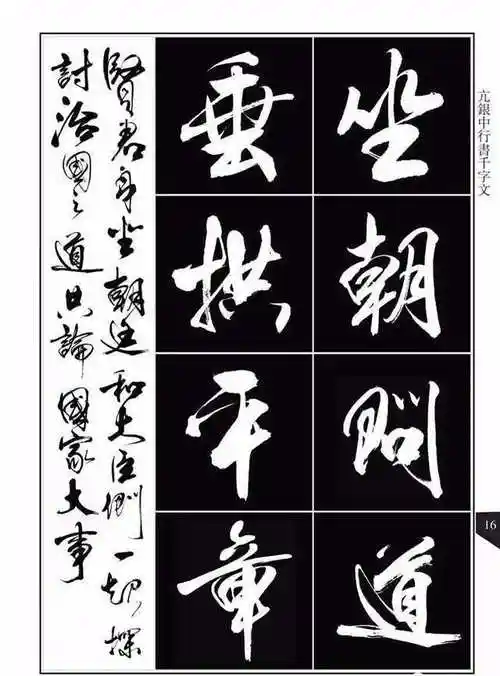 亢銀中行書千字文
坐朝問道
垂拱平章
賢君身坐朝廷和大臣側一起探
討治國之道共論國家大事
16